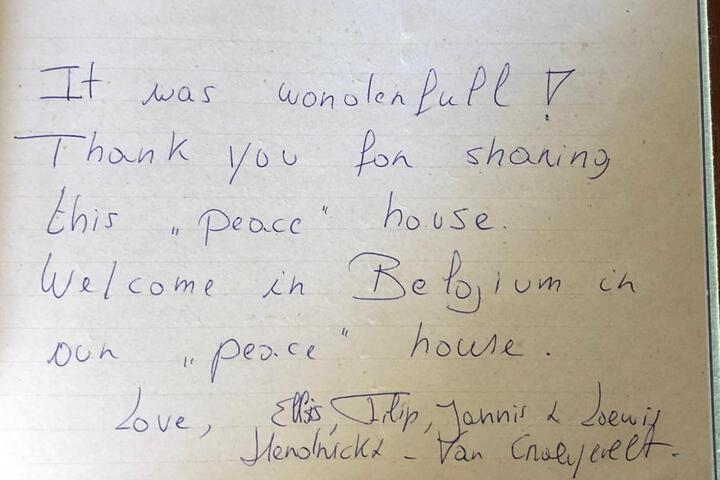 It was wonderfull!
Thank you for sharing
this „peace" house.
Welcome in Belgium in
our „peace" house.
Love, Filip, Jannis &
Hendrickx - Van